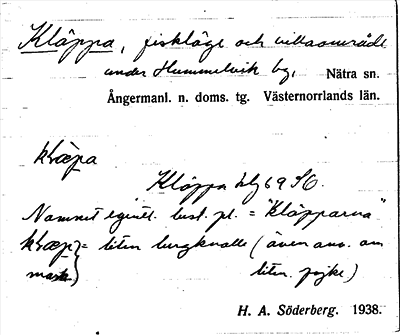 Kläppa, fiskläge och villaområde
under Hummelvik by, Nätra sn.
Ångermanl. n. doms. tg. Västernorrlands län.
klæpa
Kläppa blg 69 SO.
Namnet egentl. best. pl. = "kläpparna"
klæp = liten bergknalle (även anv. om
mask. liten pojke)
H. A. Söderberg. 1938.